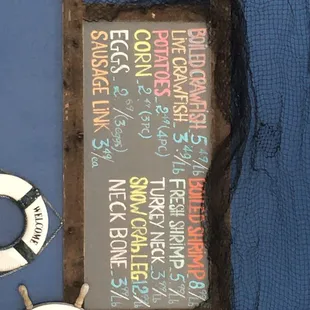 BOILED CRAWFISH 5.49/Lb
LIVE CRAWFISH 3.49/Lb
POTATOES 2.49(4PC)
CORN 2.49(3PC)
EGGS 2.69/(3eggs)
SAUSAGE LINK 3.49/ea
BOILED SHRIMP 8
FRESH SHRIMP 5
TURKEY NECK 3
SNOW CRAB LEG 12
NECK BONE 3
WELCOME